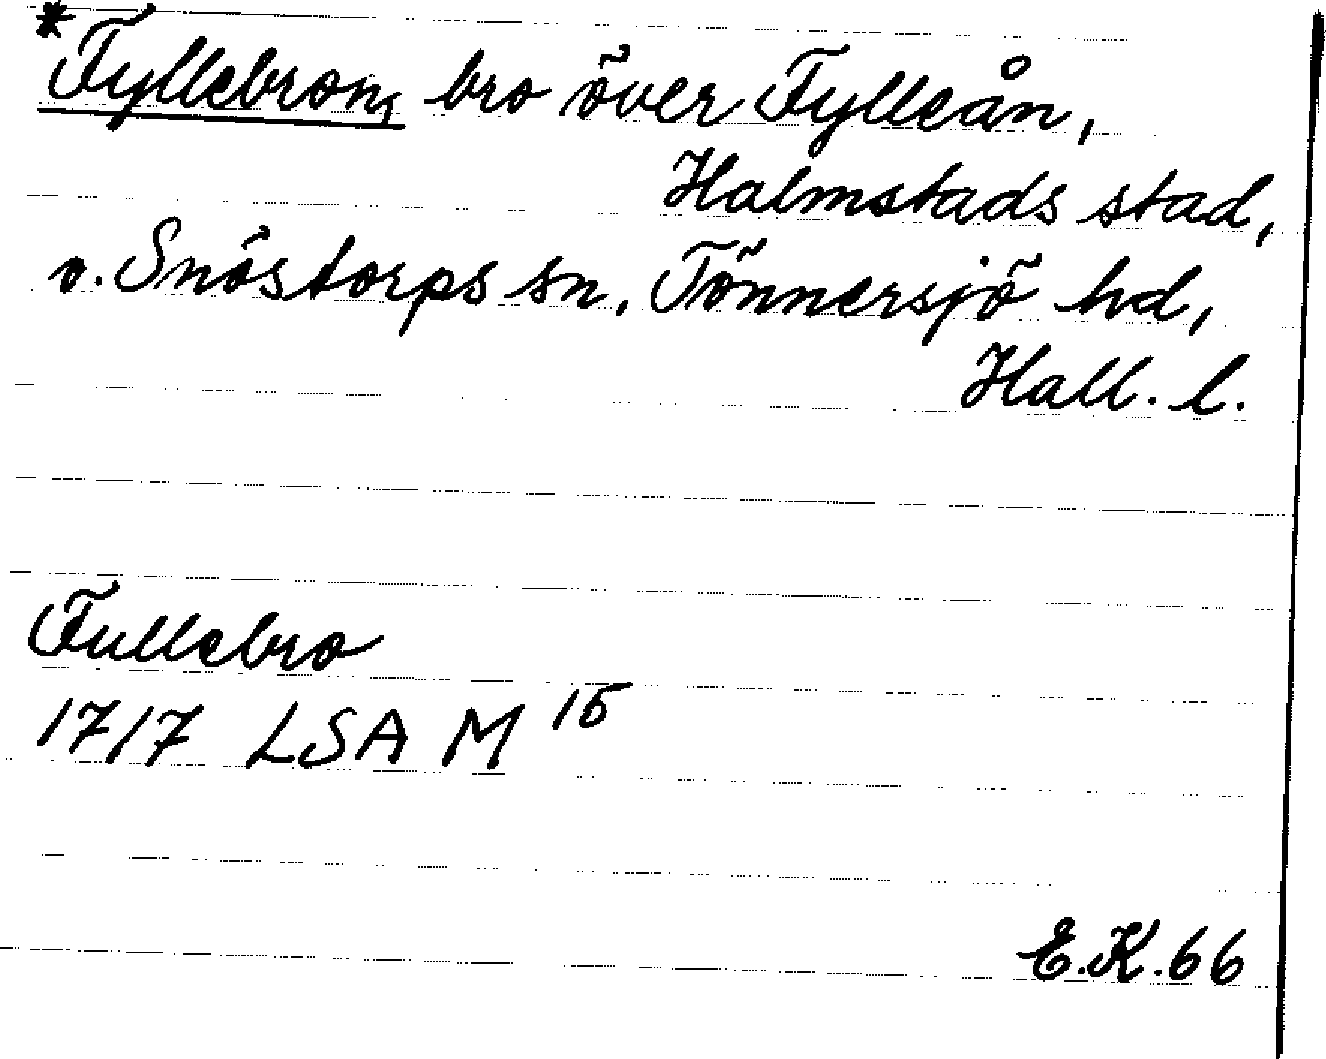 *Fyllebron, bro över Fylleån,
Halmstads stad,
o. Snöstorps sn, Tönnersjö hd,
Hall. l.
Fullebro
1717 LSA M 15
E.K. 66